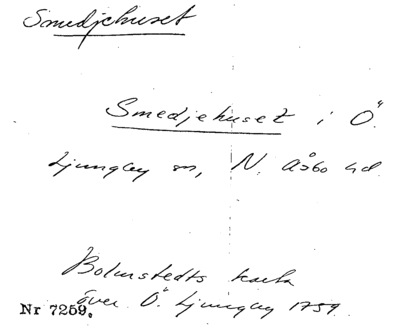 Smedjehuset
Smedjehuset i Ö.
Ljungby sn, N. Åsbo hd.
Bolmstedts karta
över Ö. Ljungby 1759.
Nr 7259.